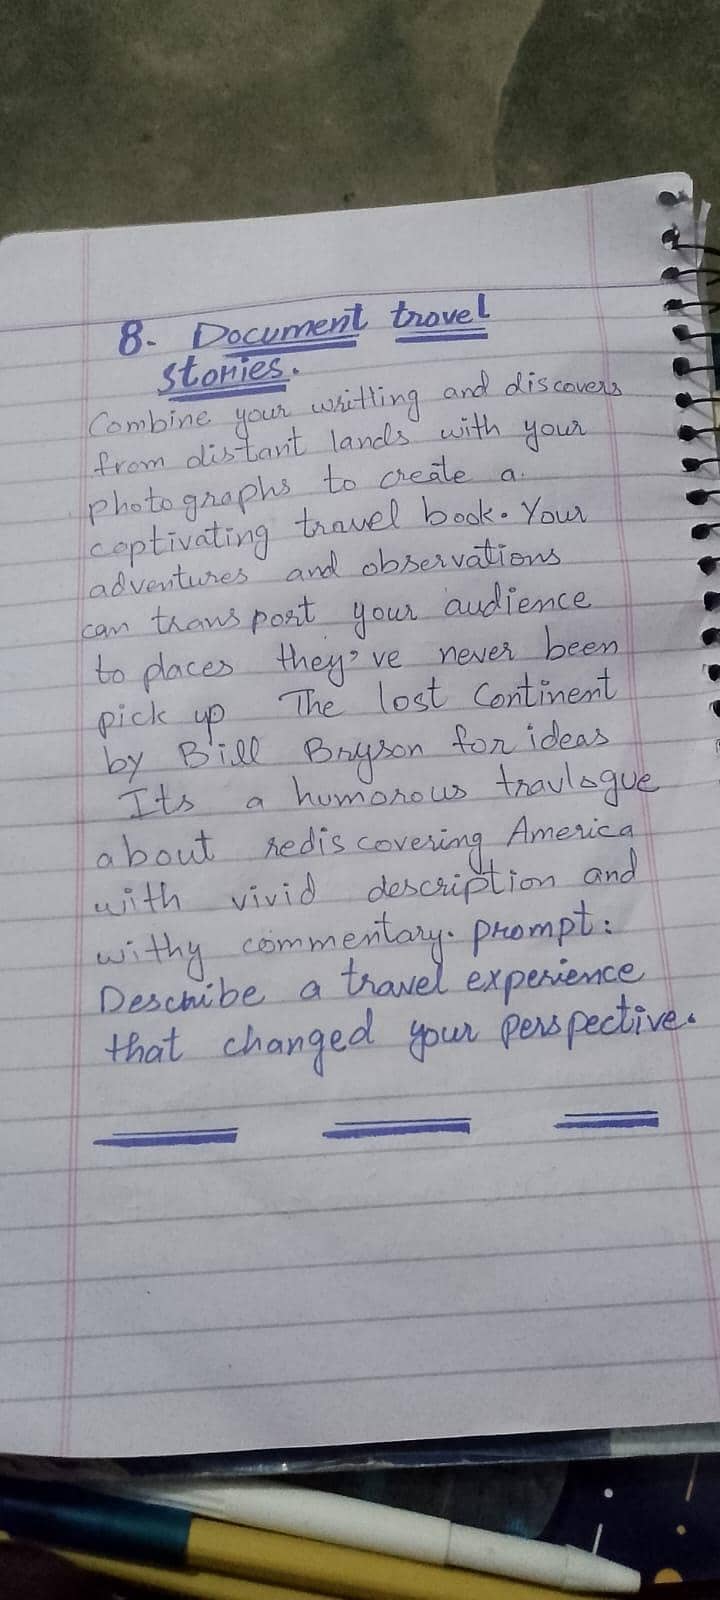 8- Document travel
stories.
Combine your writting and discovers
from distant lands with your
photographs to create a
captivating travel book. Your
adventures and observations
can transport your audience
to places they've never been
pick up The lost Continent
by Bill Bryson for ideas
Its a humorous travlogue
about rediscovering America
with vivid description and
withy commentary. prompt:
Describe a travel experience
that changed your perspective.